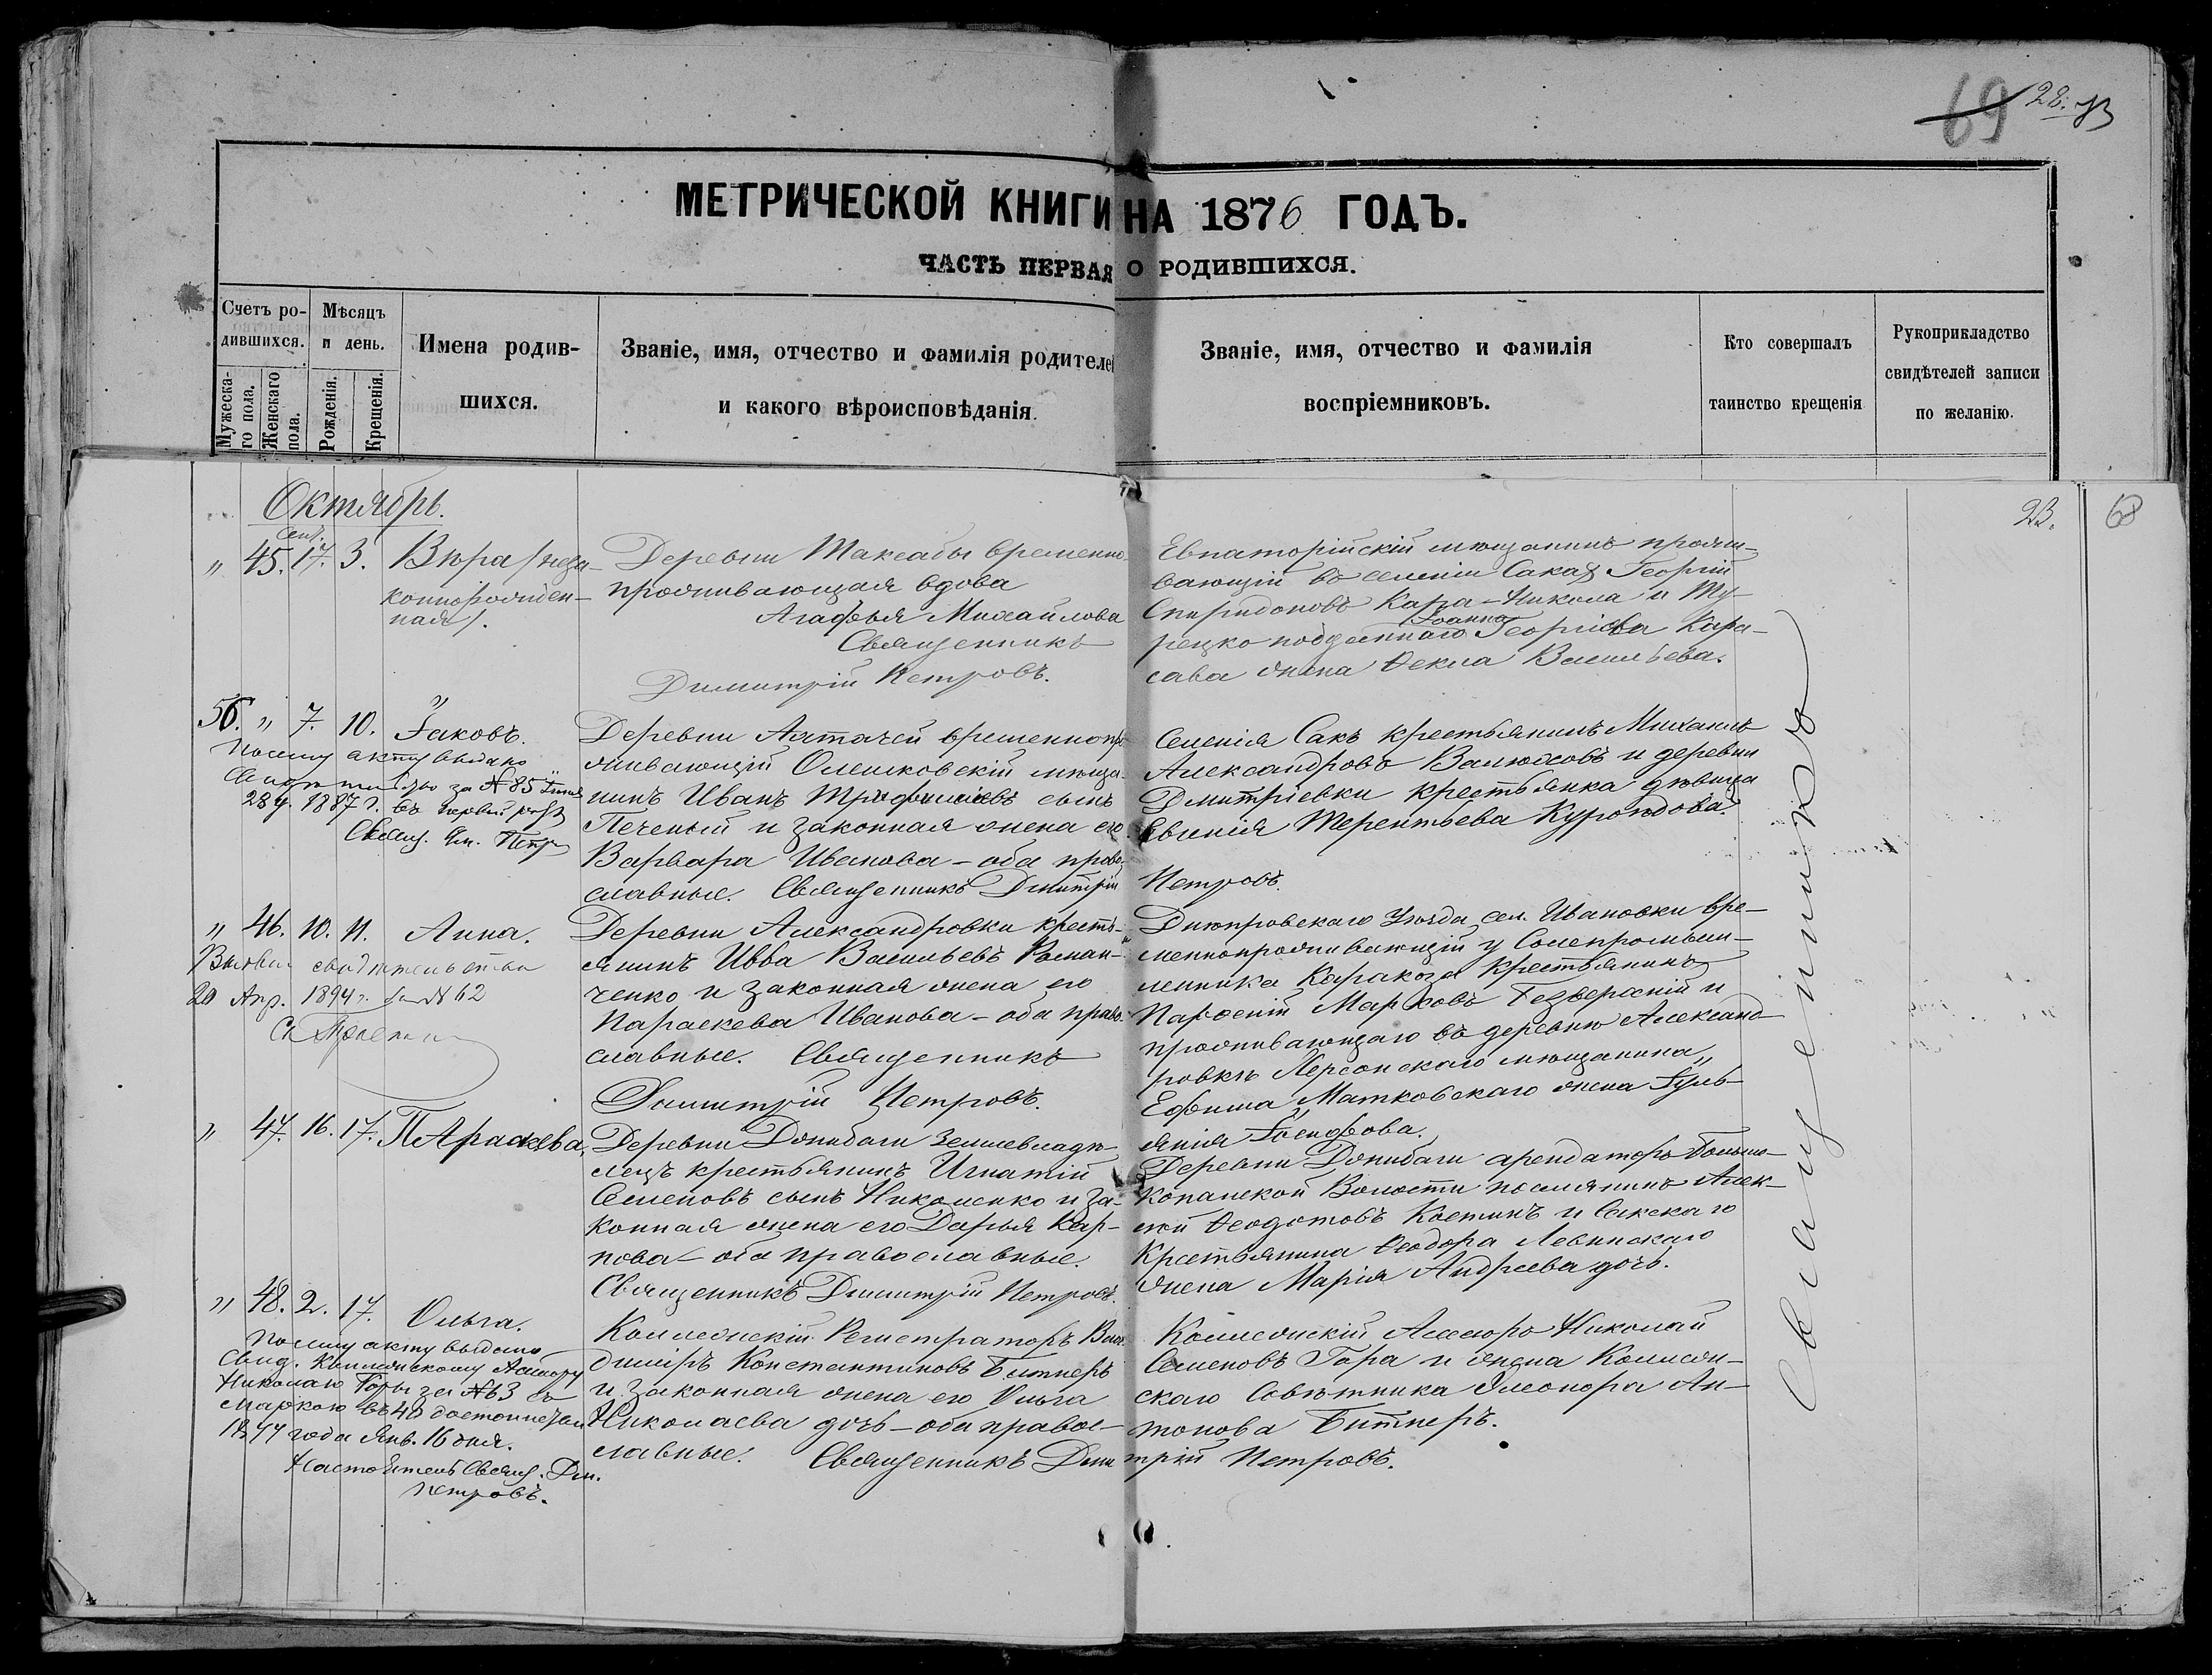 69 28.
МЕТРИЧЕСКОЙ КНИГИ НА 1876 ГОДЪ.
ЧАСТЬ ПЕРВАЯ О РОДИВШИХСЯ.
Счетъ ро-
дившихся.
Мужеска-
го пола.
Женскаго
пола.
Мѣсяцъ
и день.
Рожденія.
Крещенія.
Имена родив-
шихся.
Званіе, имя, отчество и фамилія родителе
и какого вѣроисповѣданія.
Званіе, имя, отчество и фамилія
воспріемниковъ.
Кто совершалъ
таинство крещенія
Рукоприкладство
свидѣтелей записи
по желанію.
23. 68
Октябрь.
Сент.
" 45. 17. 3. Вѣра /неза-
коннорожден-
ная/.
Деревни Таксабы временно
проживающая вдова
Агафья Михайлова
Священникъ
Димитрій Петровъ.
Евпаторійскій мѣщанинъ прожи-
вающій въ селеніи Сакахъ Георгій
Спиридоновъ Кара-Никола и Ту-
рецко подданнаго Іоанна Георгіева Кара-
сава жена Ѳекла Васильева.
56. " 7. 10. Іаковъ.
По сему акту выдано
за № 85
28 1887 г. въ первый разъ
Свящ. Дм. Петр
Деревни Аятачей временно про
живающій Олешковскій мѣща-
нинъ Иванъ Трифиліевъ сынъ
Печеный и законная жена его
Варвара Иванова - оба право-
славные. Священникъ Дмитрій Петровъ.
Селенія Сакъ крестьянинъ Михаилъ
Александровъ Валюховъ и деревни
Дмитріевки крестьянка дѣвица
Евѳимія Терентьева Куроѣдова.
" 46. 10. 11. Анна.
свидѣтельство
20 Апр. 1894 г. за № 62
Деревни Александровки кресть-
янинъ Ивва Васильевъ Роман-
ченко и законная жена его
Параскева Иванова - оба право-
славные. Священникъ
Димитрій Петровъ.
Днѣпровскаго Уѣзда сел. Ивановки вре-
меннопроживающій у Солепромыш-
ленника Каракоза крестьянинъ
Парѳеній Марковъ Безверхній и
проживающаго въ деревнѣ Александ-
ровкѣ Херсонскаго мѣщанина
Ефима Матковскаго жена Іуль-
янія Іосифова.
" 47. 16. 17. Параскева.
Деревни Джибаги землевладѣ-
лецъ крестьянинъ Игнатій
Семеновъ сынъ Николенко и за-
конная жена его Дарья Кар-
пова - оба православные.
Священникъ Димитрій Петровъ.
Деревни Джибаги арендаторъ Больше-
копанской Волости поселянинъ Алек-
сѣй Ѳеодотовъ Костинъ и Сакскаго
Крестьянина Ѳеодора Левинскаго
жена Марія Андреева дочь.
" 48. 2. 17. Ольга.
По сему акту выдано
Свид. Коллежскому Асессору
Николаю Горы за № 63 съ
маркою въ 40 достоинствомъ
1877 года Янв. 16 дня.
Настоятель Свящ. Дм.
Петровъ.
Коллежскій Регистраторъ Вла-
диміръ Константиновъ Битнеръ
и законная жена его Ольга
Николаева дочь - оба правос-
лавные. Священникъ Дмитрій Петровъ.
Коллежскій Асесоръ Николай
Семеновъ Гора и жена Коллеж-
скаго Совѣтника Элеонора Ан-
тонова Битнеръ.
Священникъ